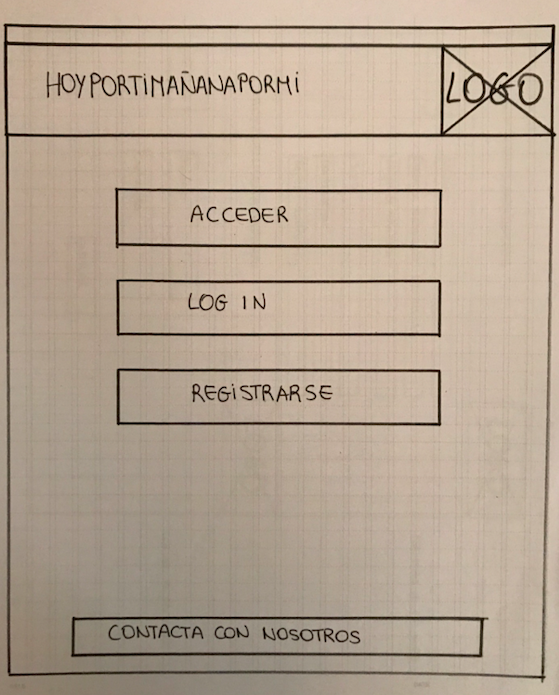 HOYPORTiMAÑANAPORMi
LOGO
ACCEDER
LOG IN
REGiSTRARSE
CONTACTA CON NOSOTROS